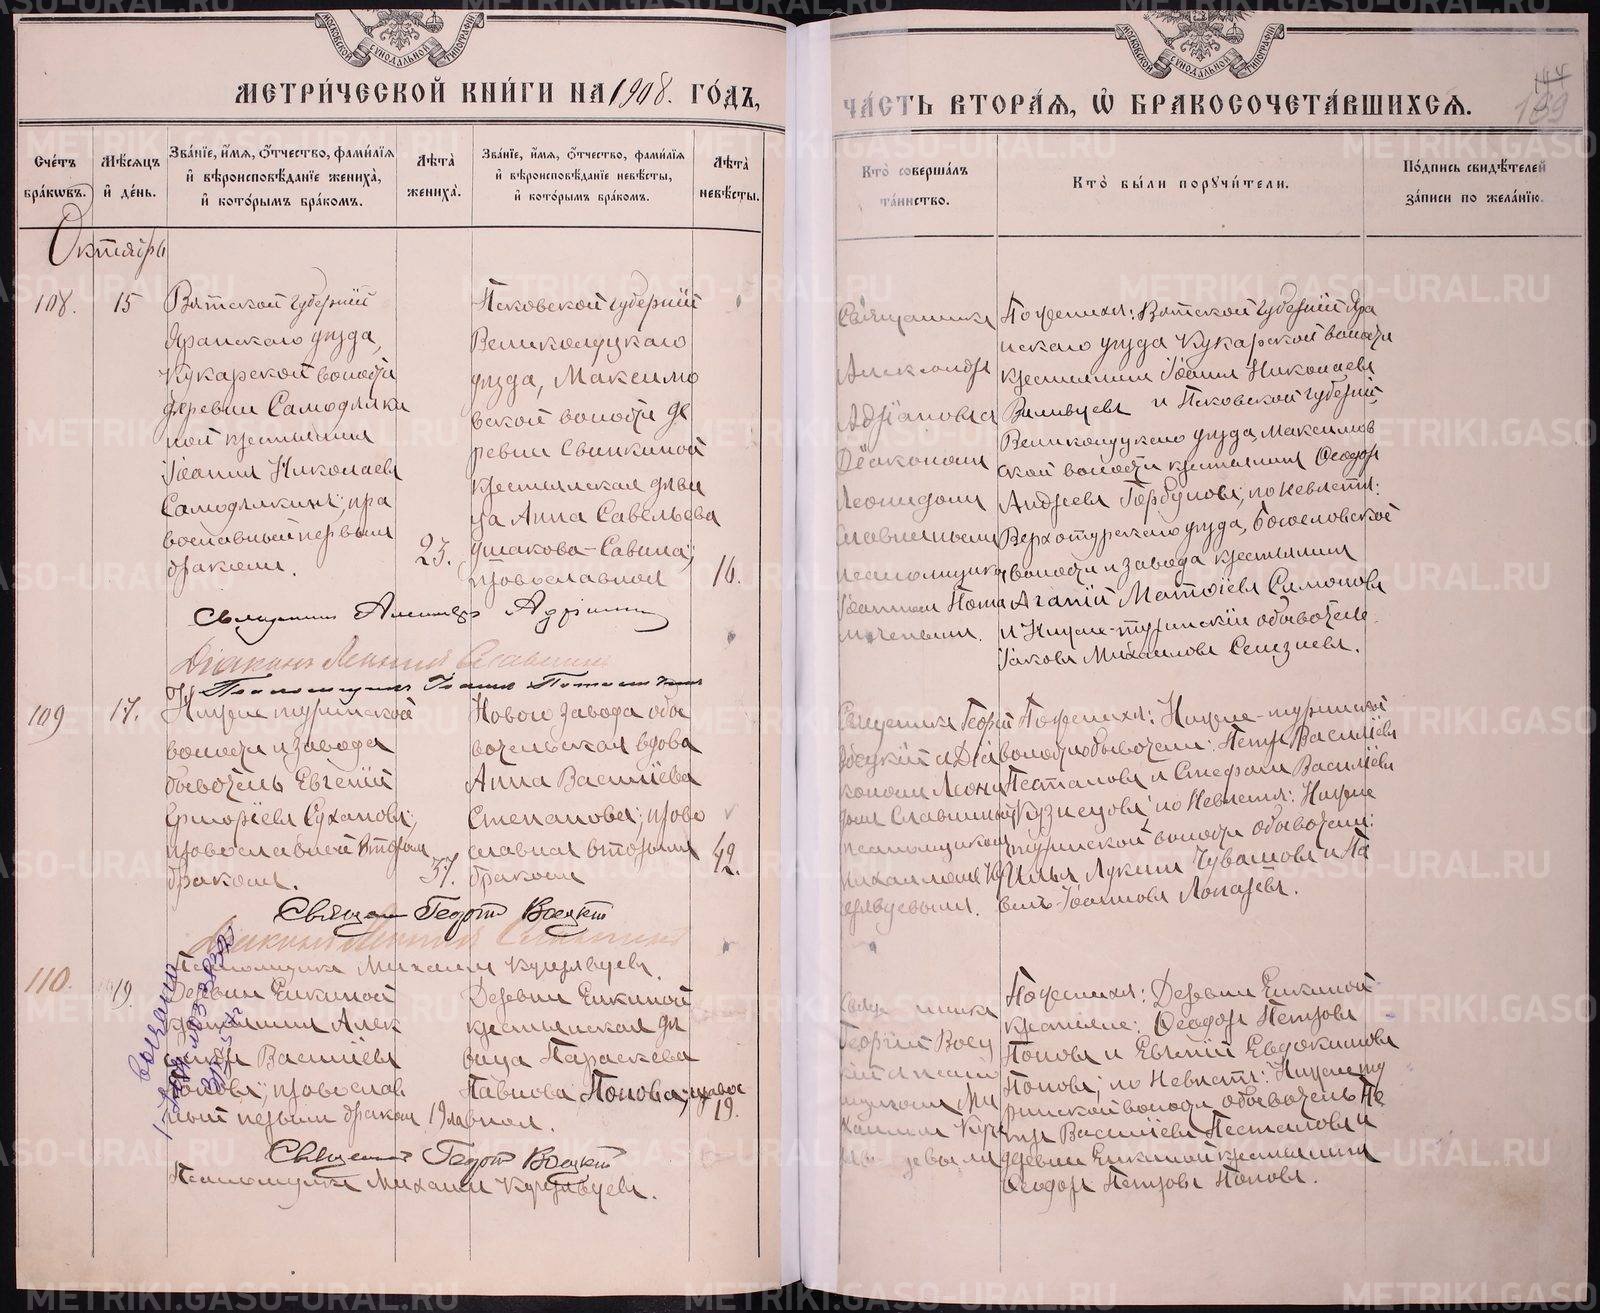 МЕТРИ́ЧЕСКОЙ КНИ́ГИ НА 1908. ГО́ДЪ,
Сче́тъ бра́кѡвъ.
Мѣ́сѧцъ и҆ де́нь.
Зва́нїе, и҆́мѧ, ѻ҆́тчество, фами́лїѧ и҆ вѣроисповѣ́данїе жениха̀, и҆ кото́рымъ бра́комъ.
Лѣ́та̀ жениха̀.
Зва́нїе, и҆́мѧ, ѻ҆́тчество, фами́лїѧ и҆ вѣроисповѣ́данїе невѣ́сты, и҆ кото́рымъ бра́комъ.
Лѣ́та̀ невѣ́сты.
Октябрь
108.
15
Вятской губернiи
Яранскаго уѣзда,
Кукарской волости
деревни Самодѣлки
ной крестьянинъ
Iоаннъ Николаевъ
Самодѣлкинъ; пра
вославный первымъ
бракомъ.
23.
Псковской губернiи
Великолуцкаго
уѣзда, Максимо
вской волости де
ревни Свинкиной
крестьянская дѣви
ца Анна Савельева
Ушакова-Савина;
православная
16.
Священникъ Александръ Адрiановъ
Дiаконъ Леонидъ Славнинъ
Псаломщикъ Iоаннъ
109
17.
Нижне туринской
волости и завода
обыватель Евгенiй
Григорiевъ Сухановъ;
православный вторымъ
бракомъ.
37.
Новаго завода обы
вательская вдова
Анна Васильева
Степанова; право
славная вторымъ
бракомъ
42.
Священ Георгiй
Дiаконъ Леонидъ Славнинъ
Псаломщикъ Михаилъ Кужелвцевъ.
110.
19.
Деревни Елкиной
крестьянинъ Алек
Васильевъ
Поповъ; православ
ный первымъ бракомъ
19
Деревни Елкиной
крестьянская дѣ
вица Параскева
Павлова Попова; право
славная.
19.
Священ Георгiй
Псаломщикъ Михаилъ
ЧА́СТЬ ВТОРА́Ѧ, Ѡ҆ БРАКОСОЧЕТА́ВШИХСѦ.
144
Кто̀ соверша́лъ та́инство.
Кто̀ бы́ли порꙋчи́тели.
По́дпись свидѣ́телей за́писи по жела́нїю.
Священникъ
Александръ
Адрiановъ съ
Дiакономъ
Леонидомъ
Славнинымъ
псаломщикомъ
Iоанномъ
По женихѣ: Вятской губернiи Яра
нскаго уѣзда Кукарской волости
крестьянинъ Iоаннъ Николаевъ
и Псковской губернiи,
Великолуцкаго уѣзда, Максимов
ской волости крестьянинъ Ѳеодоръ
Андреевъ Горбуновъ; по невѣстѣ:
Верхотурскаго уѣзда, Богословской
волости и завода крестьянинъ
Агапiй Матѳiевъ Симоновъ
и Нижне-туринскiй обыватель
Iаковъ Михаиловъ Селезневъ.
Священникъ Георгiй
и Дiа
кономъ Леони
домъ Славнинымъ
псаломщикомъ
Михаиломъ
По женихѣ: Нижне-туринской
волости обыватели: Петръ Васильевъ
Пестановъ и Стефанъ Васильевъ
Кузнецовъ; по невѣстѣ: Нижне
туринской волости обыватели:
Илья Лукинъ Чувашовъ и Па
велъ Iоанновъ Лопаревъ.
Георгiй
Ми
хаиломъ
По женихѣ: Деревни Елкиной
крестьяне: Ѳеодоръ Петровъ
Поповъ и Евгенiй Евдокимовъ
Поповъ; по невѣстѣ: Нижнету
ринской волости обыватель Пе
тръ Васильевъ Пестановъ и
деревни Елкиной крестьянинъ
Ѳеодоръ Петровъ Поповъ.